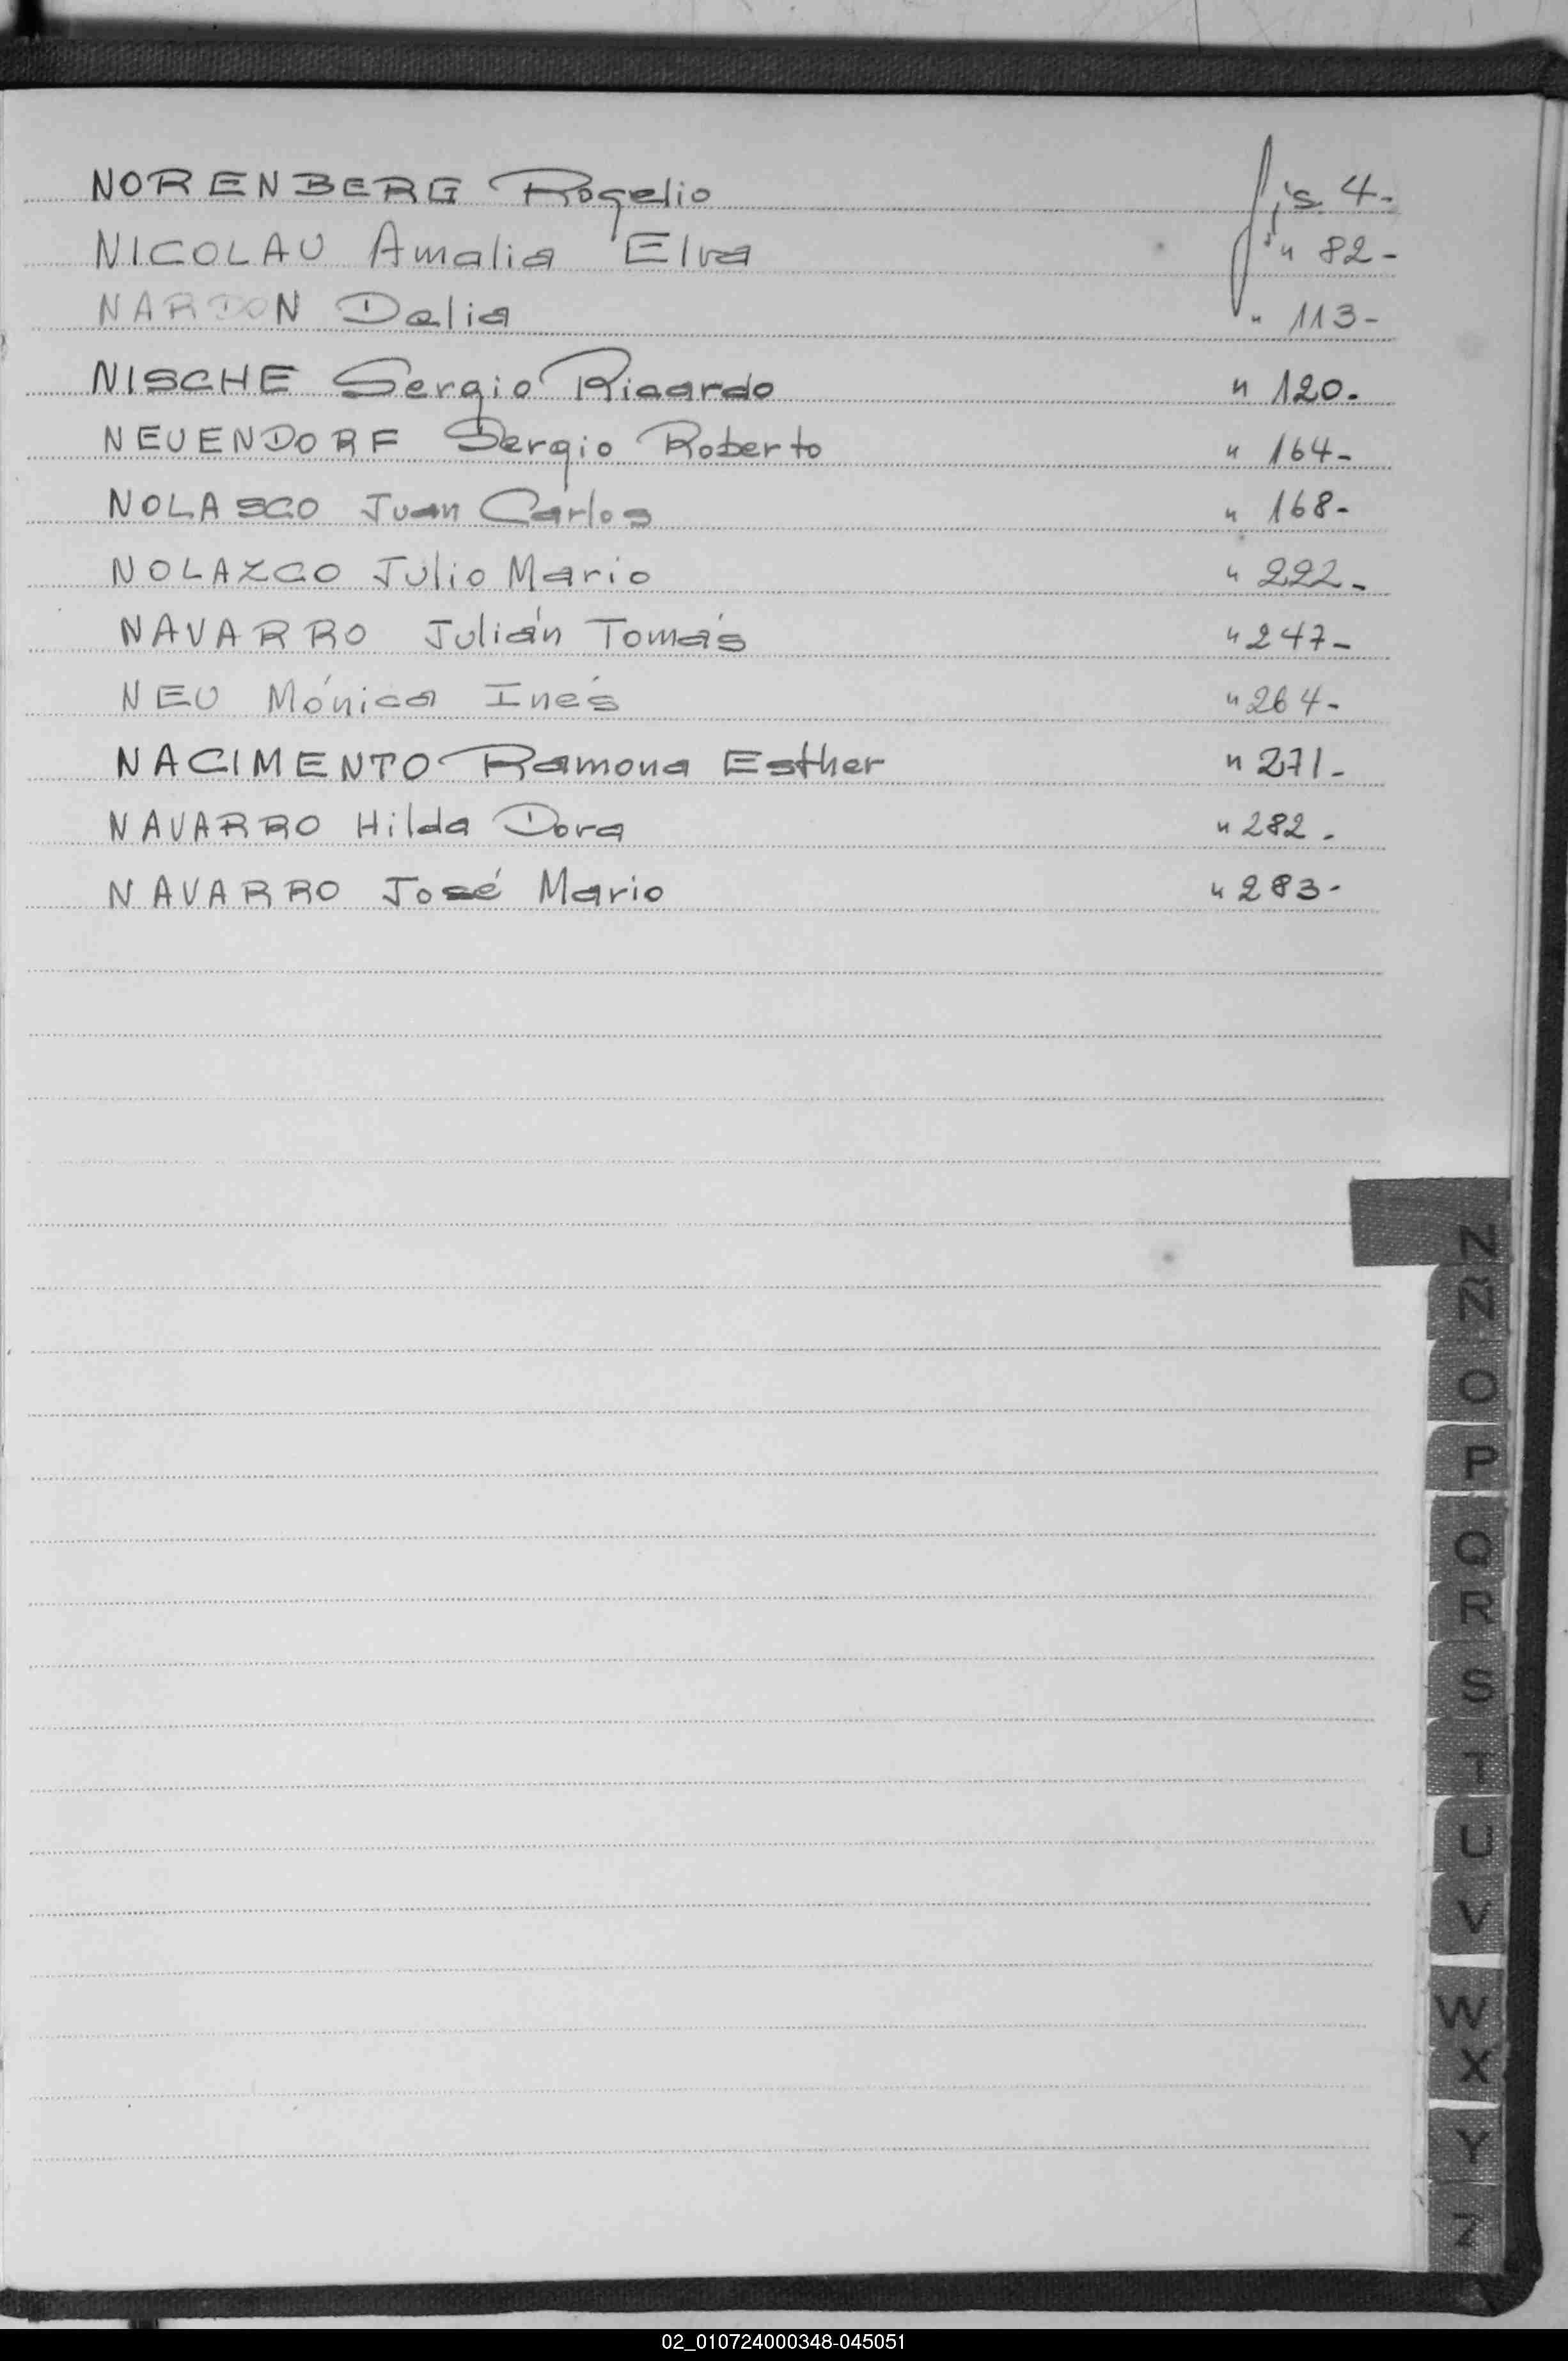 NORENBERG Rogelio fjs. 4-
NICOLAU Amalia Elva " 82-
NARDON Delia " 113-
NISCHE Sergio Ricardo " 120.
NEUENDORF Sergio Roberto " 164-
NOLASCO Juan Carlos " 168-
NOLAZCO Julio Mario " 222-
NAVARRO Julián Tomás " 247-
NEU Mónica Inés " 264-
NACIMENTO Ramona Esther " 271-
NAVARRO Hilda Dora " 282.
NAVARRO José Mario " 283-
N
Ñ
O
P
Q
R
S
T
U
V
W
X
Y
Z
02_010724000348-045051